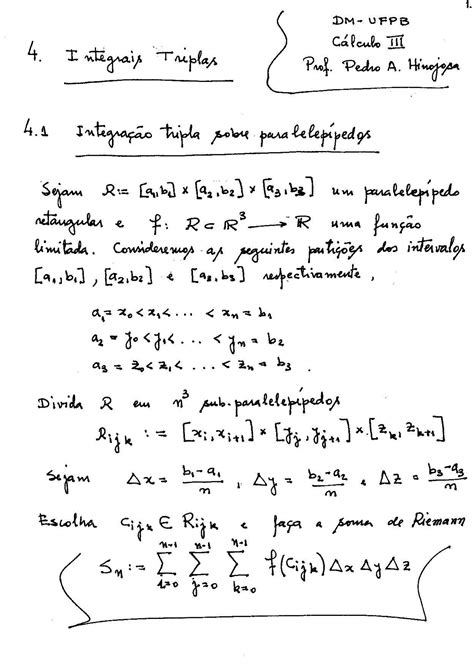 1.
DM - UFPB
Cálculo III
Prof. Pedro A. Hinojosa
4. Integrais Triplas
4.1 Integração tripla sobre paralelepípedos
Sejam R:= [a₁,b₁] × [a₂,b₂] × [a₃,b₃] um paralelepípedo
retangular e f: R ⊂ ℝ³ → ℝ uma função
limitada. Consideremos as seguintes partições dos intervalos
[a₁,b₁], [a₂,b₂] e [a₃,b₃] respectivamente,
a₁ = x₀ < x₁ < ... < xₙ = b₁
a₂ = y₀ < y₁ < ... < yₙ = b₂
a₃ = z₀ < z₁ < ... < zₙ = b₃ .
Divida R em n³ sub-paralelepípedos
Rᵢⱼₖ := [xᵢ, xᵢ₊₁] × [yⱼ, yⱼ₊₁] × [zₖ, zₖ₊₁]
Sejam Δx = (b₁-a₁)/n , Δy = (b₂-a₂)/n e Δz = (b₃-a₃)/n
Escolha Cᵢⱼₖ ∈ Rᵢⱼₖ e faça a soma de Riemann
Sₙ := ∑_{i=0}^{n-1} ∑_{j=0}^{n-1} ∑_{k=0}^{n-1} f(Cᵢⱼₖ) Δx Δy Δz